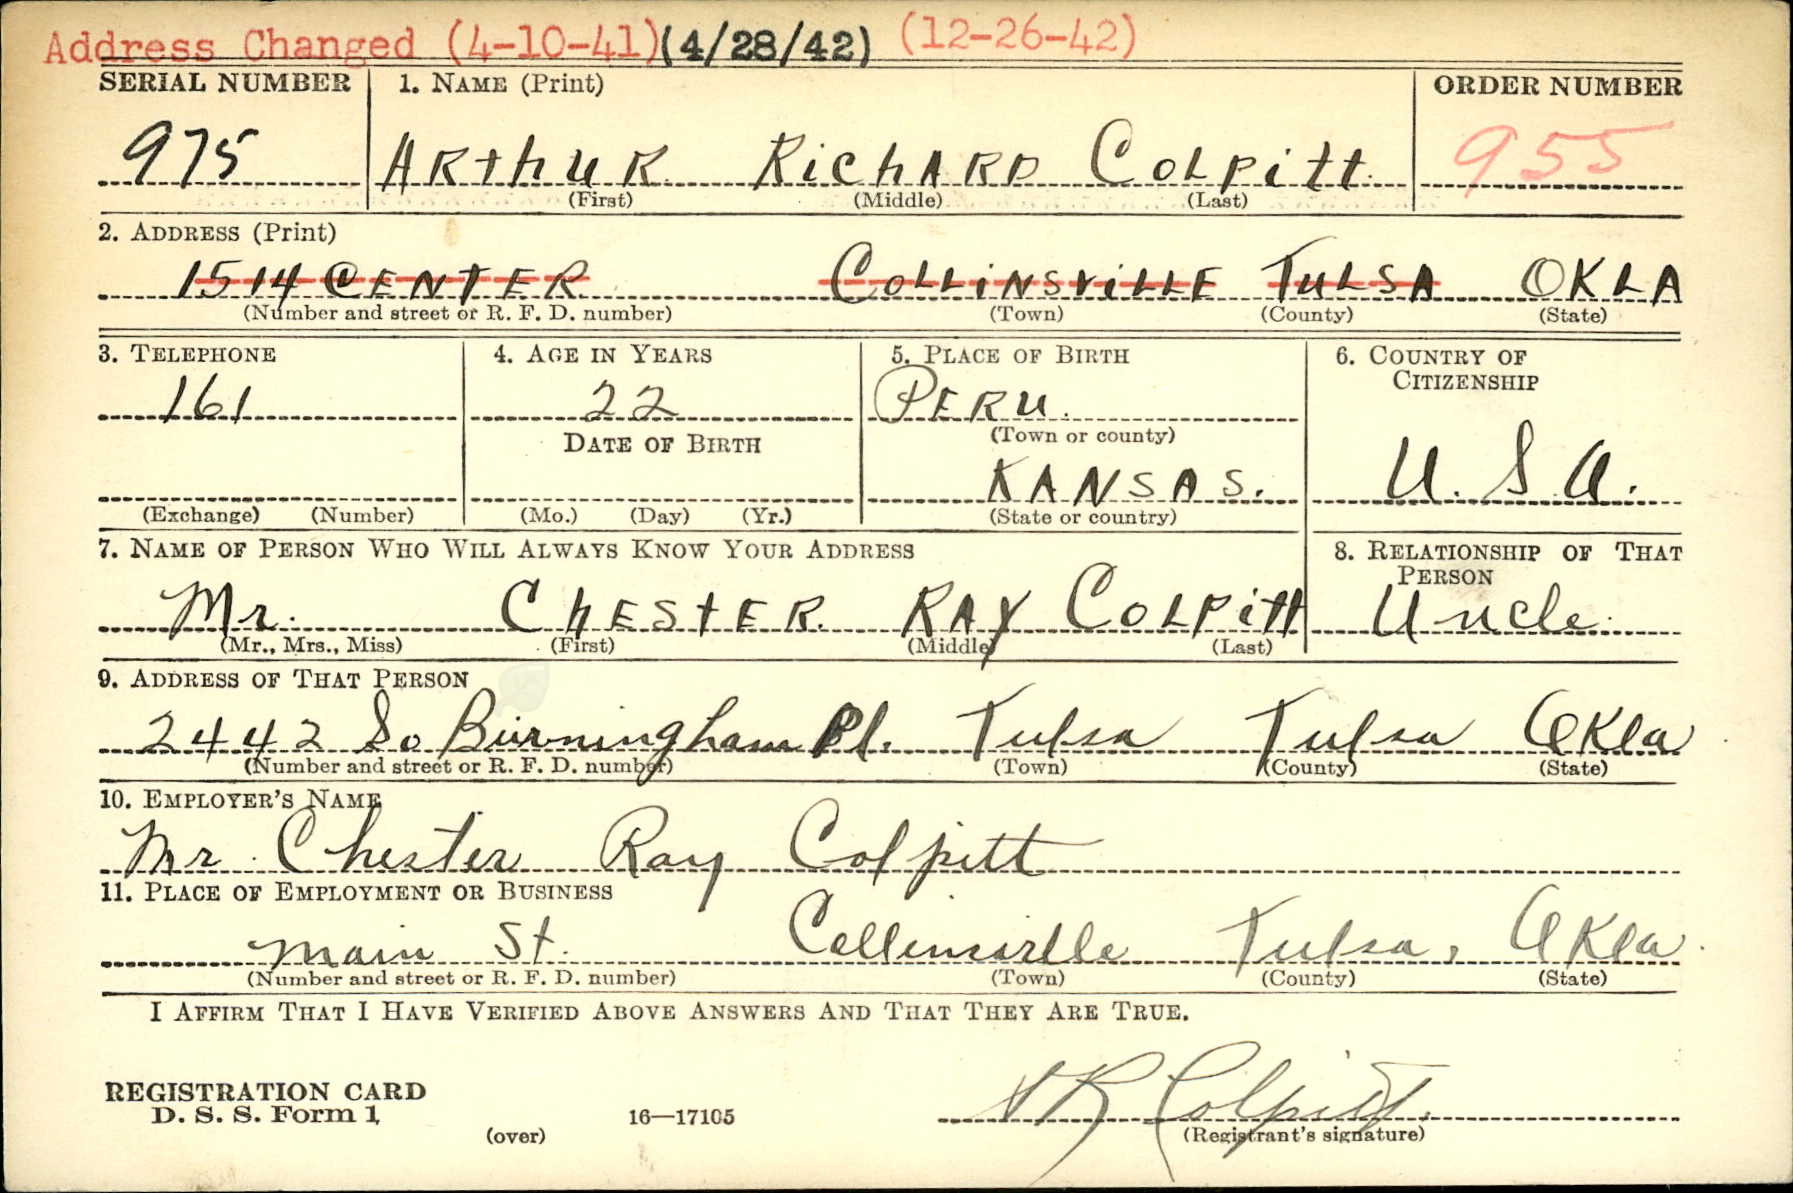 Address Changed (4-10-41)(4/28/42) (12-26-42)
SERIAL NUMBER 1. NAME (Print) ORDER NUMBER
975 ARthuR RichARD ColPitt 955
(First) (Middle) (Last)
2. ADDRESS (Print)
1514 CENTER COLLINSVILLE TULSA OKLA
(Number and street or R. F. D. number) (Town) (County) (State)
3. TELEPHONE 4. AGE IN YEARS 5. PLACE OF BIRTH 6. COUNTRY OF CITIZENSHIP
161 22 PERU.
(Town or county)
DATE OF BIRTH
KANSAS. U.S.A.
(Exchange) (Number) (Mo.) (Day) (Yr.) (State or country)
7. NAME OF PERSON WHO WILL ALWAYS KNOW YOUR ADDRESS 8. RELATIONSHIP OF THAT PERSON
Mr. ChEStER. RAY ColPitt Uncle
(Mr., Mrs., Miss) (First) (Middle) (Last)
9. ADDRESS OF THAT PERSON
2442 So Birmingham Pl. Tulsa Tulsa Okla
(Number and street or R. F. D. number) (Town) (County) (State)
10. EMPLOYER'S NAME
Mr. Chester Ray Colpitt
11. PLACE OF EMPLOYMENT OR BUSINESS
Main St. Collinsville Tulsa, Okla.
(Number and street or R. F. D. number) (Town) (County) (State)
I AFFIRM THAT I HAVE VERIFIED ABOVE ANSWERS AND THAT THEY ARE TRUE.
REGISTRATION CARD
D. S. S. Form 1 16—17105 A R Colpitt.
(over) (Registrant's signature)